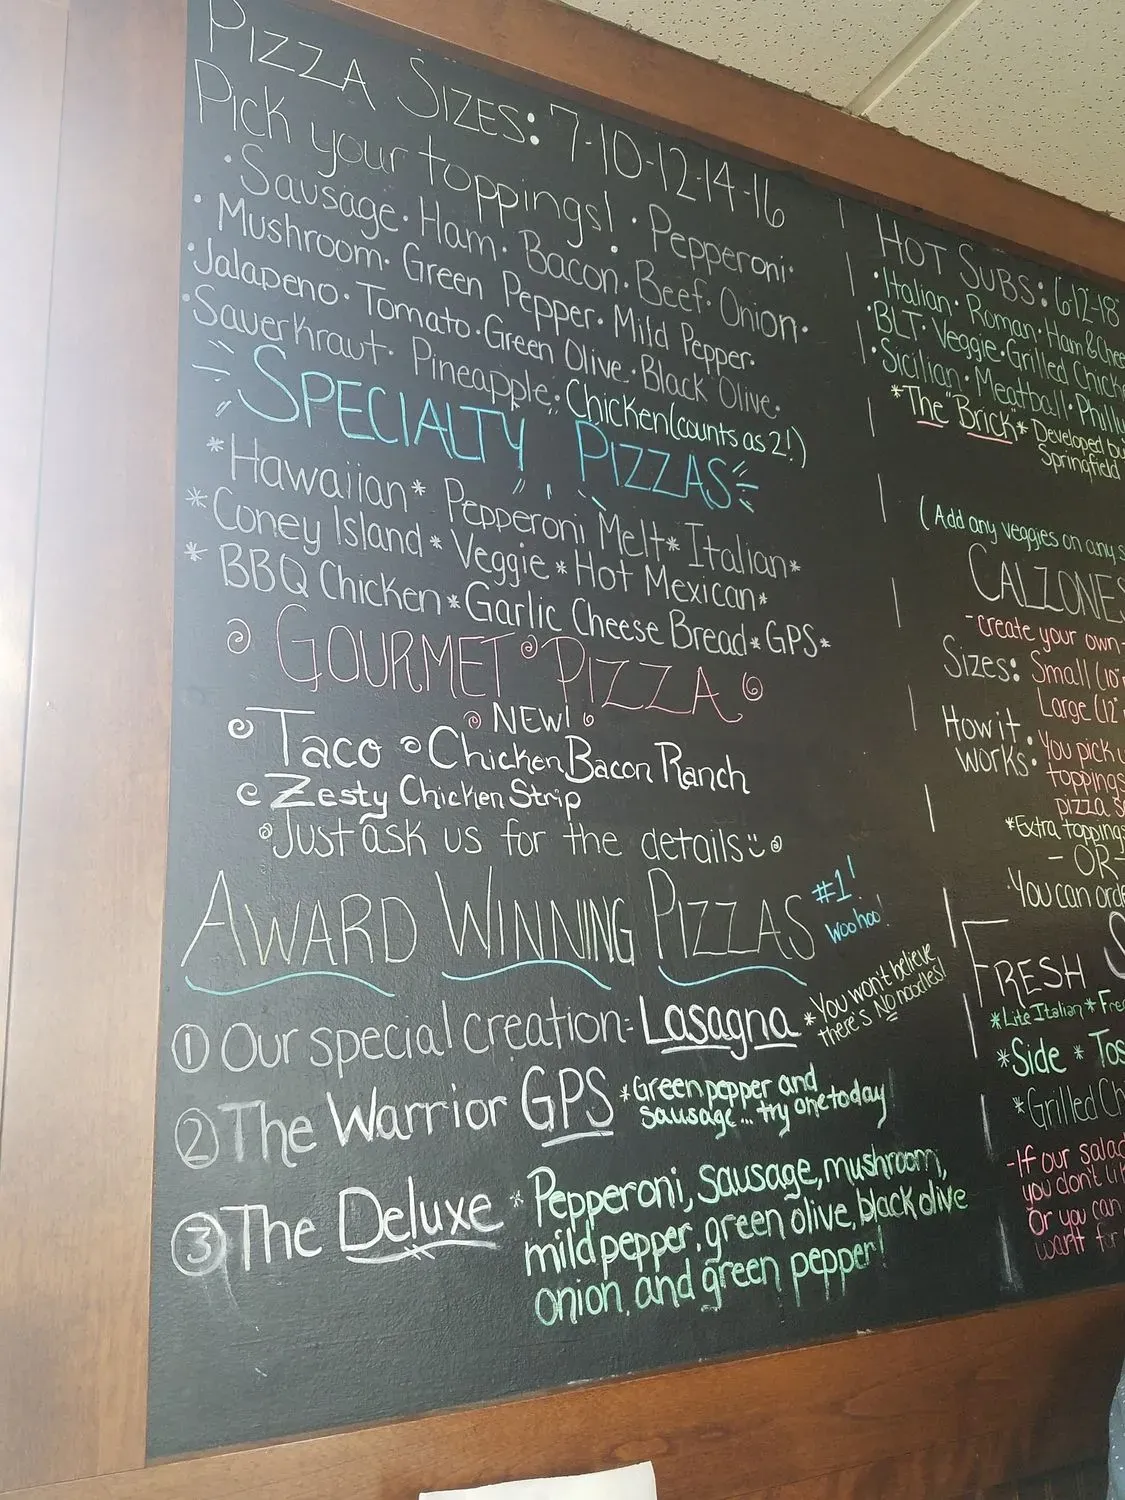 PIZZA SIZES: 7-10-12-14-16
Pick your toppings! • Pepperoni •
• Sausage • Ham • Bacon • Beef • Onion •
• Mushroom • Green Pepper • Mild Pepper •
• Jalapeno • Tomato • Green Olive • Black Olive •
• Sauerkraut • Pineapple • Chicken (counts as 2!)
SPECIALTY PIZZAS
* Hawaiian * Pepperoni Melt * Italian *
* Coney Island * Veggie * Hot Mexican *
* BBQ Chicken * Garlic Cheese Bread * GPS *
GOURMET PIZZA
NEW!
Taco Chicken Bacon Ranch
Zesty Chicken Strip
Just ask us for the details
AWARD WINNING PIZZAS #1!
Woohoo!
① Our special creation: Lasagna * You won't believe
there's No noodles!
② The Warrior GPS * Green pepper and
sausage... try one today!
③ The Deluxe * Pepperoni, sausage, mushroom,
mild pepper, green olive, black olive
onion, and green pepper!
HOT SUBS: 6"-12"-18"
• Italian • Roman • Ham & Chee
• BLT • Veggie • Grilled Chick
• Sicilian • Meatball • Philly
* The "Brick" * Developed by
Springfield
(Add any veggies on any s
CALZONES
- create your own -
Sizes: Small (10"
Large (12"
How it works: You pick
toppings
pizza
* Extra toppings
- OR -
• You can orde
FRESH S
* Lite Italian * Fre
* Side * Tos
* Grilled Ch
- If our salad
you don't li
Or you can
want for